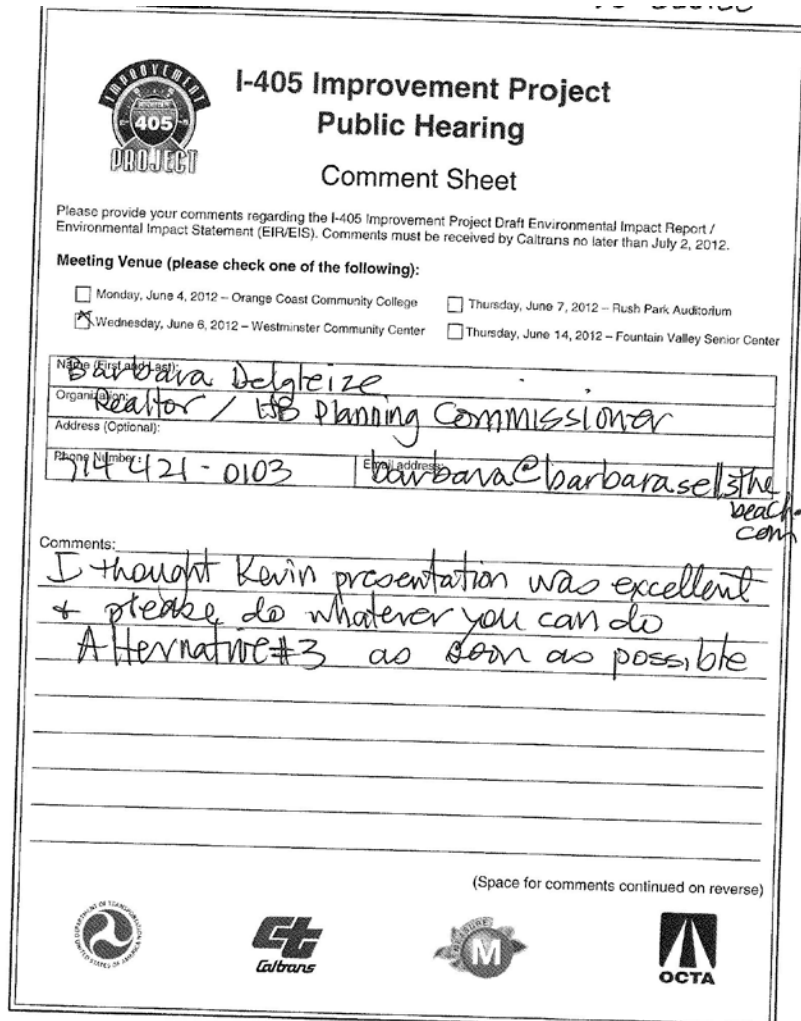 IMPROVEMENT
405
PROJECT
I-405 Improvement Project
Public Hearing
Comment Sheet
Please provide your comments regarding the I-405 Improvement Project Draft Environmental Impact Report /
Environmental Impact Statement (EIR/EIS). Comments must be received by Caltrans no later than July 2, 2012.
Meeting Venue (please check one of the following):
Monday, June 4, 2012 – Orange Coast Community College
Thursday, June 7, 2012 – Rush Park Auditorium
Wednesday, June 6, 2012 – Westminster Community Center
Thursday, June 14, 2012 – Fountain Valley Senior Center
Name (First and Last):
Barbara Delgleize
Organization:
Realtor / HB Planning Commissioner
Address (Optional):
Phone Number: 714 421-0103
Email address: barbara@barbarasellsthe
beach.
com
Comments:
I thought Kevin presentation was excellent
+ please do whatever you can do
Alternative #3 as soon as possible
(Space for comments continued on reverse)
DEPARTMENT OF TRANSPORTATION
UNITED STATES OF AMERICA
Caltrans
MEASURE
M
OCTA